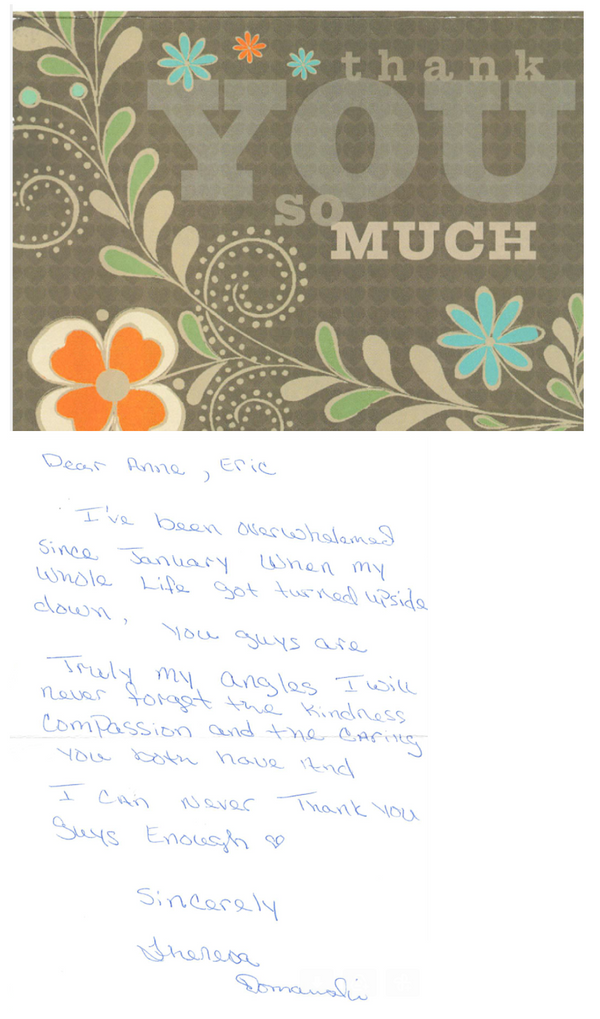 thank
YOU
so
MUCH
Dear Anne, Eric
I've been overwhelemed
since January When my
whole Life got turned upside
down, you guys are
Truly my angles I will
never forget the kindness
compassion and the caring
you both have And
I can never Thank you
guys Enough ♡
Sincerely
Theresa
Domanski